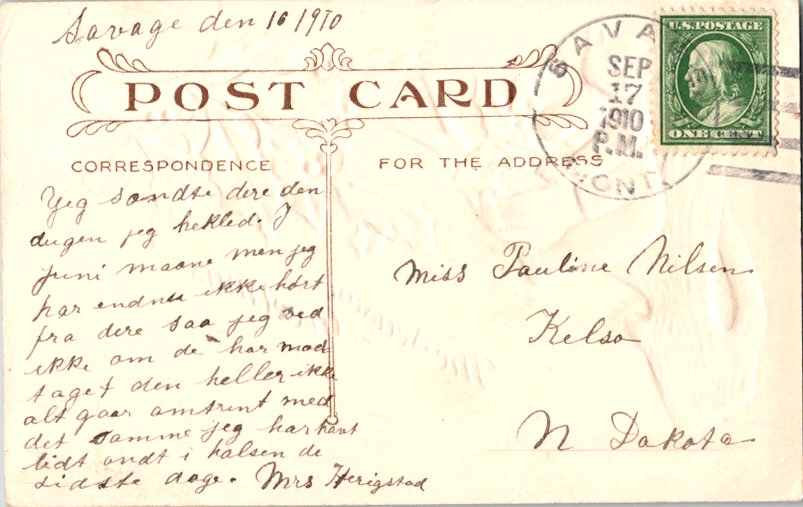 Savage den 16 1910
POST CARD
SAVA
SEP
17
1910
P.M.
MONT.
U.S. POSTAGE
ONE CENT
CORRESPONDENCE
FOR THE ADDRESS
Yeg sændte dere den
dugen jeg hekled. I
juni maane men jeg
har endnu ikke hørt
fra dere saa jeg ved
ikke om de har mod-
taget den heller ikke
alt gaar omtrent med
det samme jeg har havt
lidt ondt i halsen de
sidste dage. Mrs Herigstad
Miss Pauline Nilsen
Kelso
N Dakota